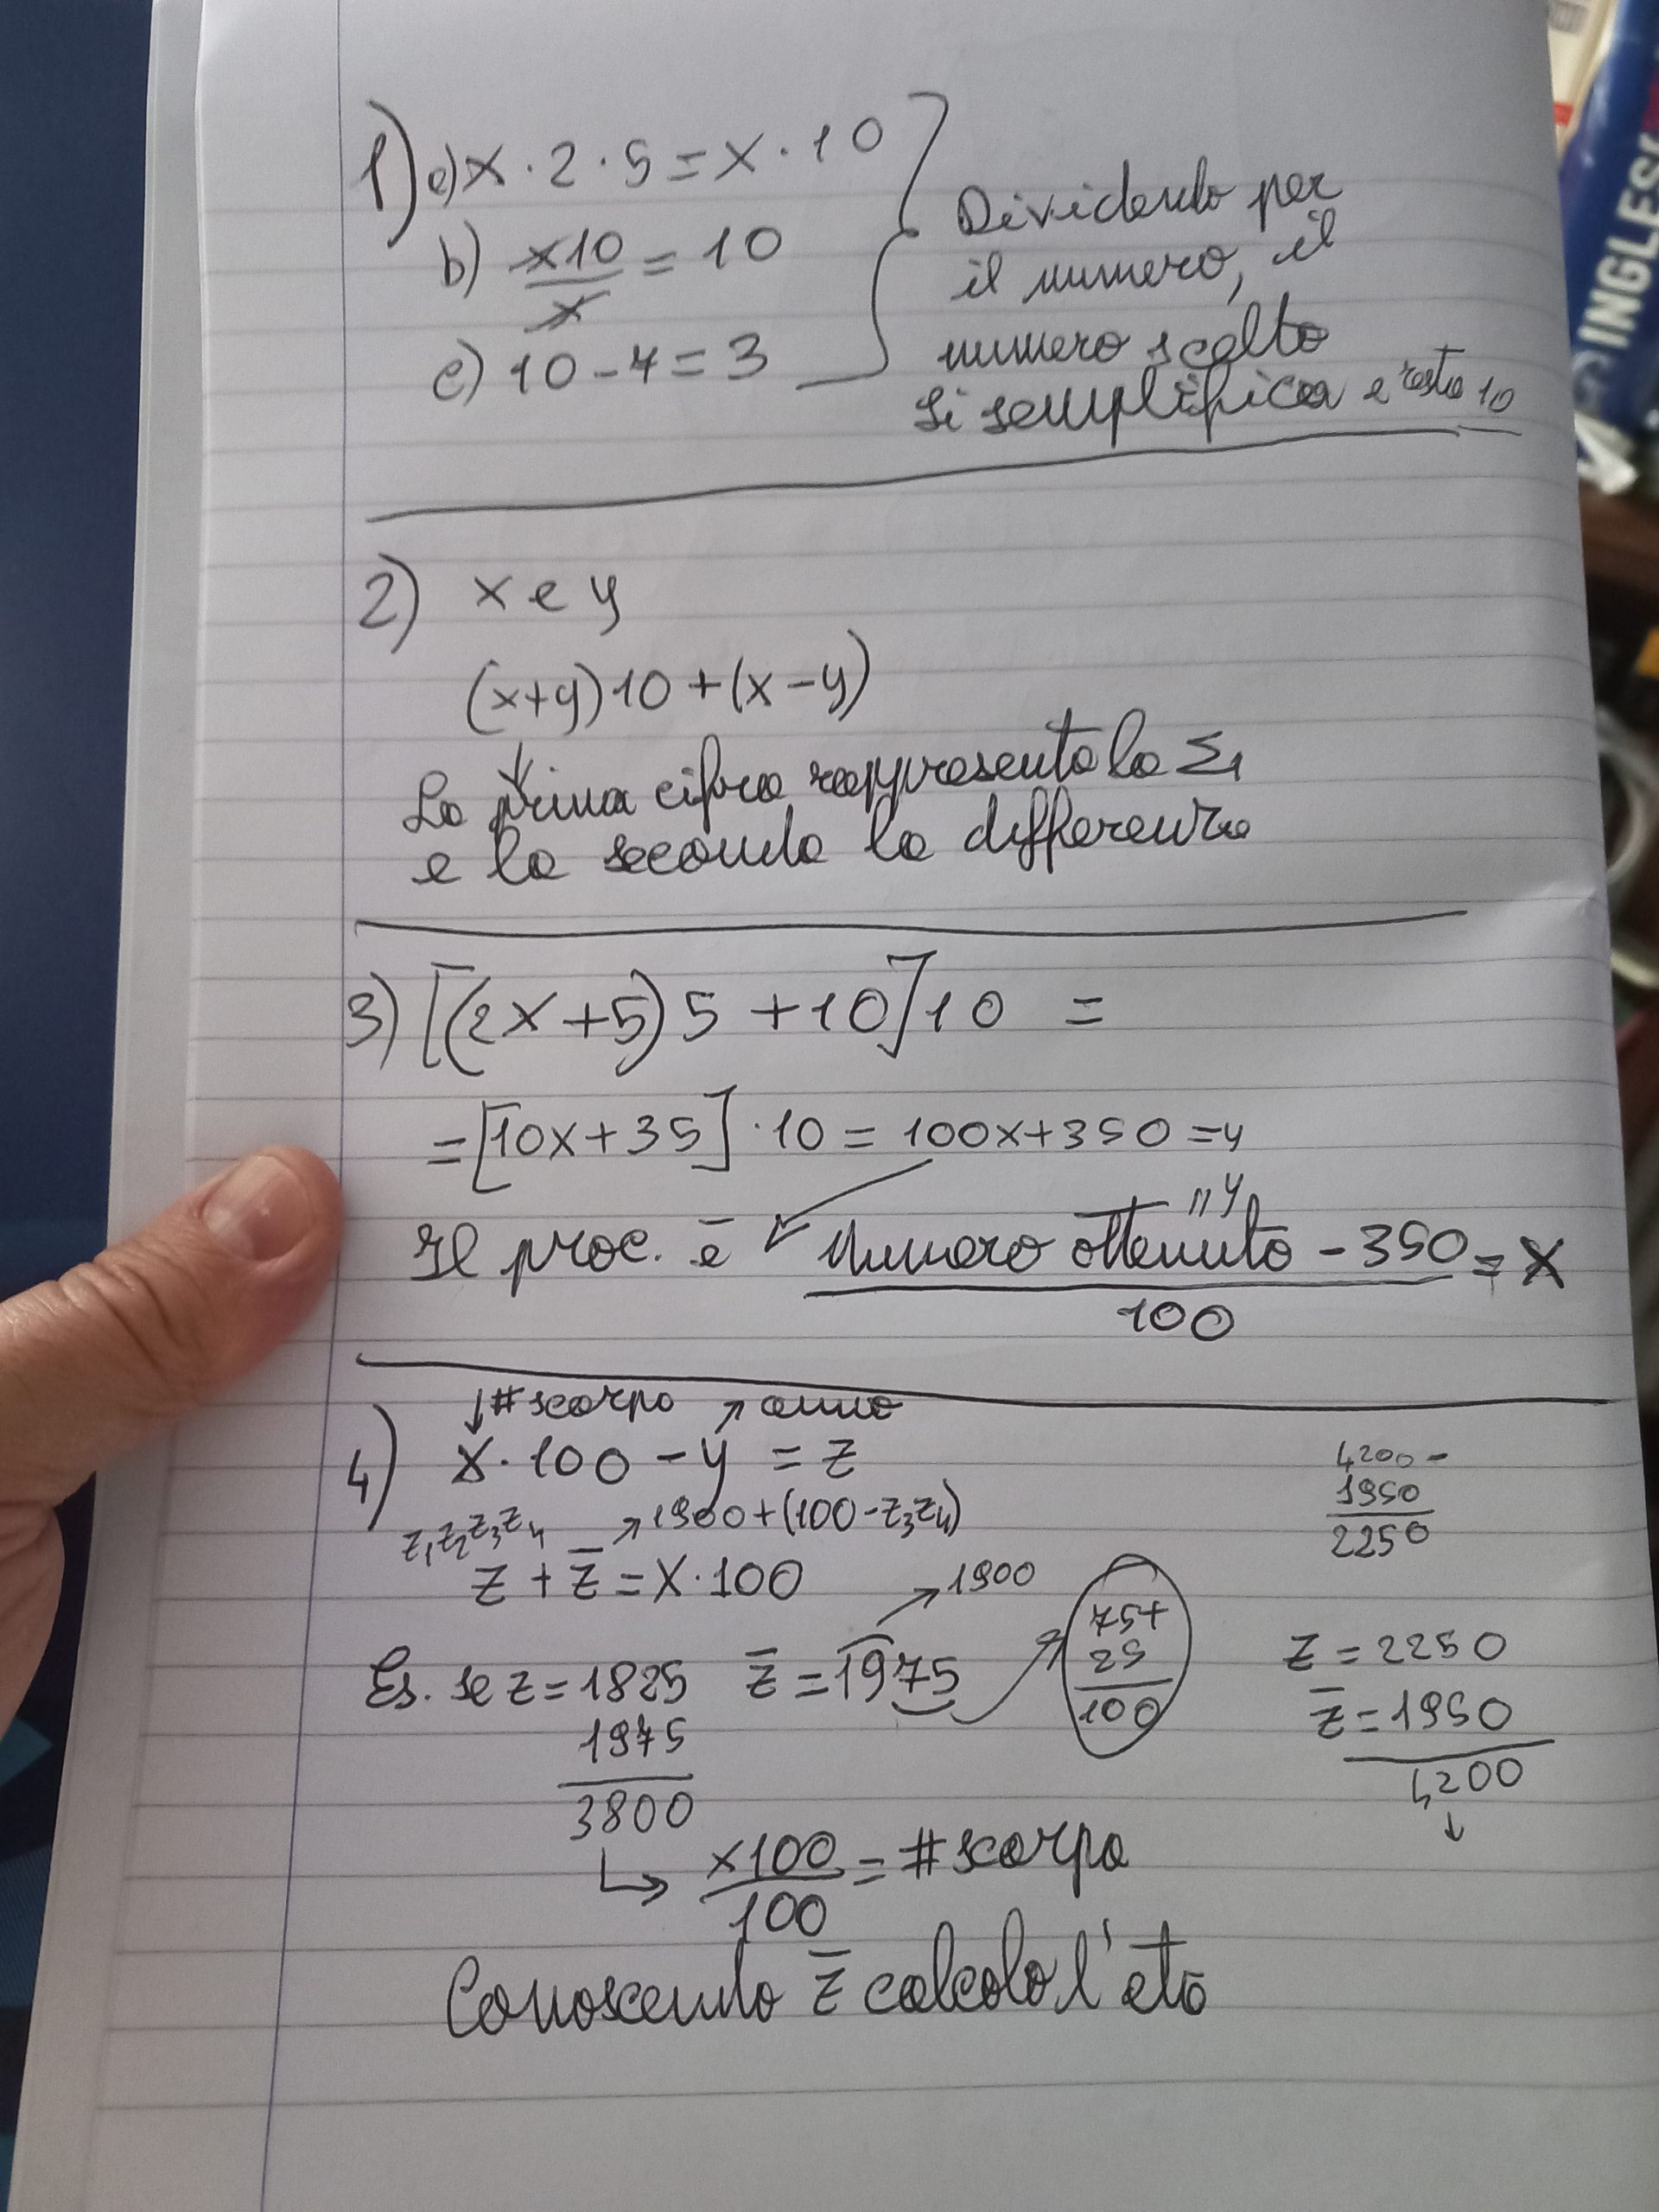 1) a) x · 2 · 5 = x · 10
b) x10/x = 10
c) 10 - 7 = 3
Dividendo per
il numero, il
numero scelto
si semplifica e resta 10
2) x e y
(x+y)10+(x-y)
La prima cifra rappresenta la Σ
e la seconda la differenza
3) [(2x+5)5+10]10 =
= [10x+35]·10 = 100x+350 = y
Il proc. è (Numero ottenuto - 350)/100 = x
"y
4) ↓#scarpa ↗anno
x·100-y = z
z₁z₂z₃z₄ ↗1900+(100-z₃z₄)
z + z̅ = x·100
4200-
1950
2250
Es. se z=1825 z̅=1975
→1900
75+
25
100
1975
3800
z = 2250
z̅ = 1950
4200
↓
↳ x100/100 = #scarpa
Conoscendo z̅ calcolo l'età
INGLES